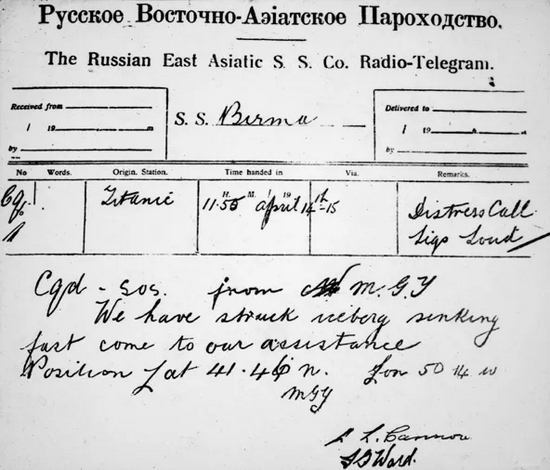 Русское Восточно-Азіатское Пароходство.
The Russian East Asiatic S. S. Co. Radio-Telegram.
Received from
1 19 m
by
S. S. Birma
Delivered to
1 19 m
by
No Words. Origin. Station. Time handed in Via. Remarks.
Cqd Titanic H. M. 19 Distress Call
1 11:50 April 14th-15 Sigs Loud
Cqd - SOS. from M.G.Y
We have struck iceberg sinking
fast come to our assistance
Position Lat 41.46 n. Lon 50 14 w
MGY
L. Cannon
Ward.